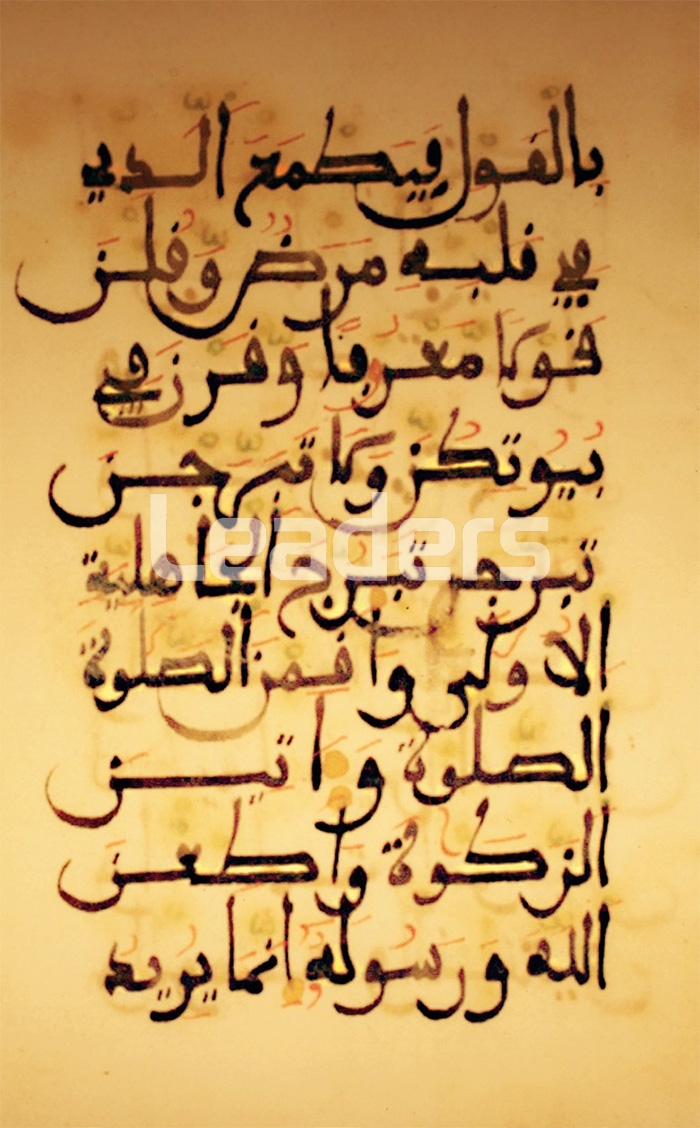 بالقول فيطمع الذي
في قلبه مرض وقلن
قولا معروفا وقرن في
بيوتكن ولا تبرجن
تبرج تبرج الجاهلية
الاولى واقمن الصلوة
الصلوة واتين
الزكوة واطعن
الله ورسوله انما يريد
Leaders